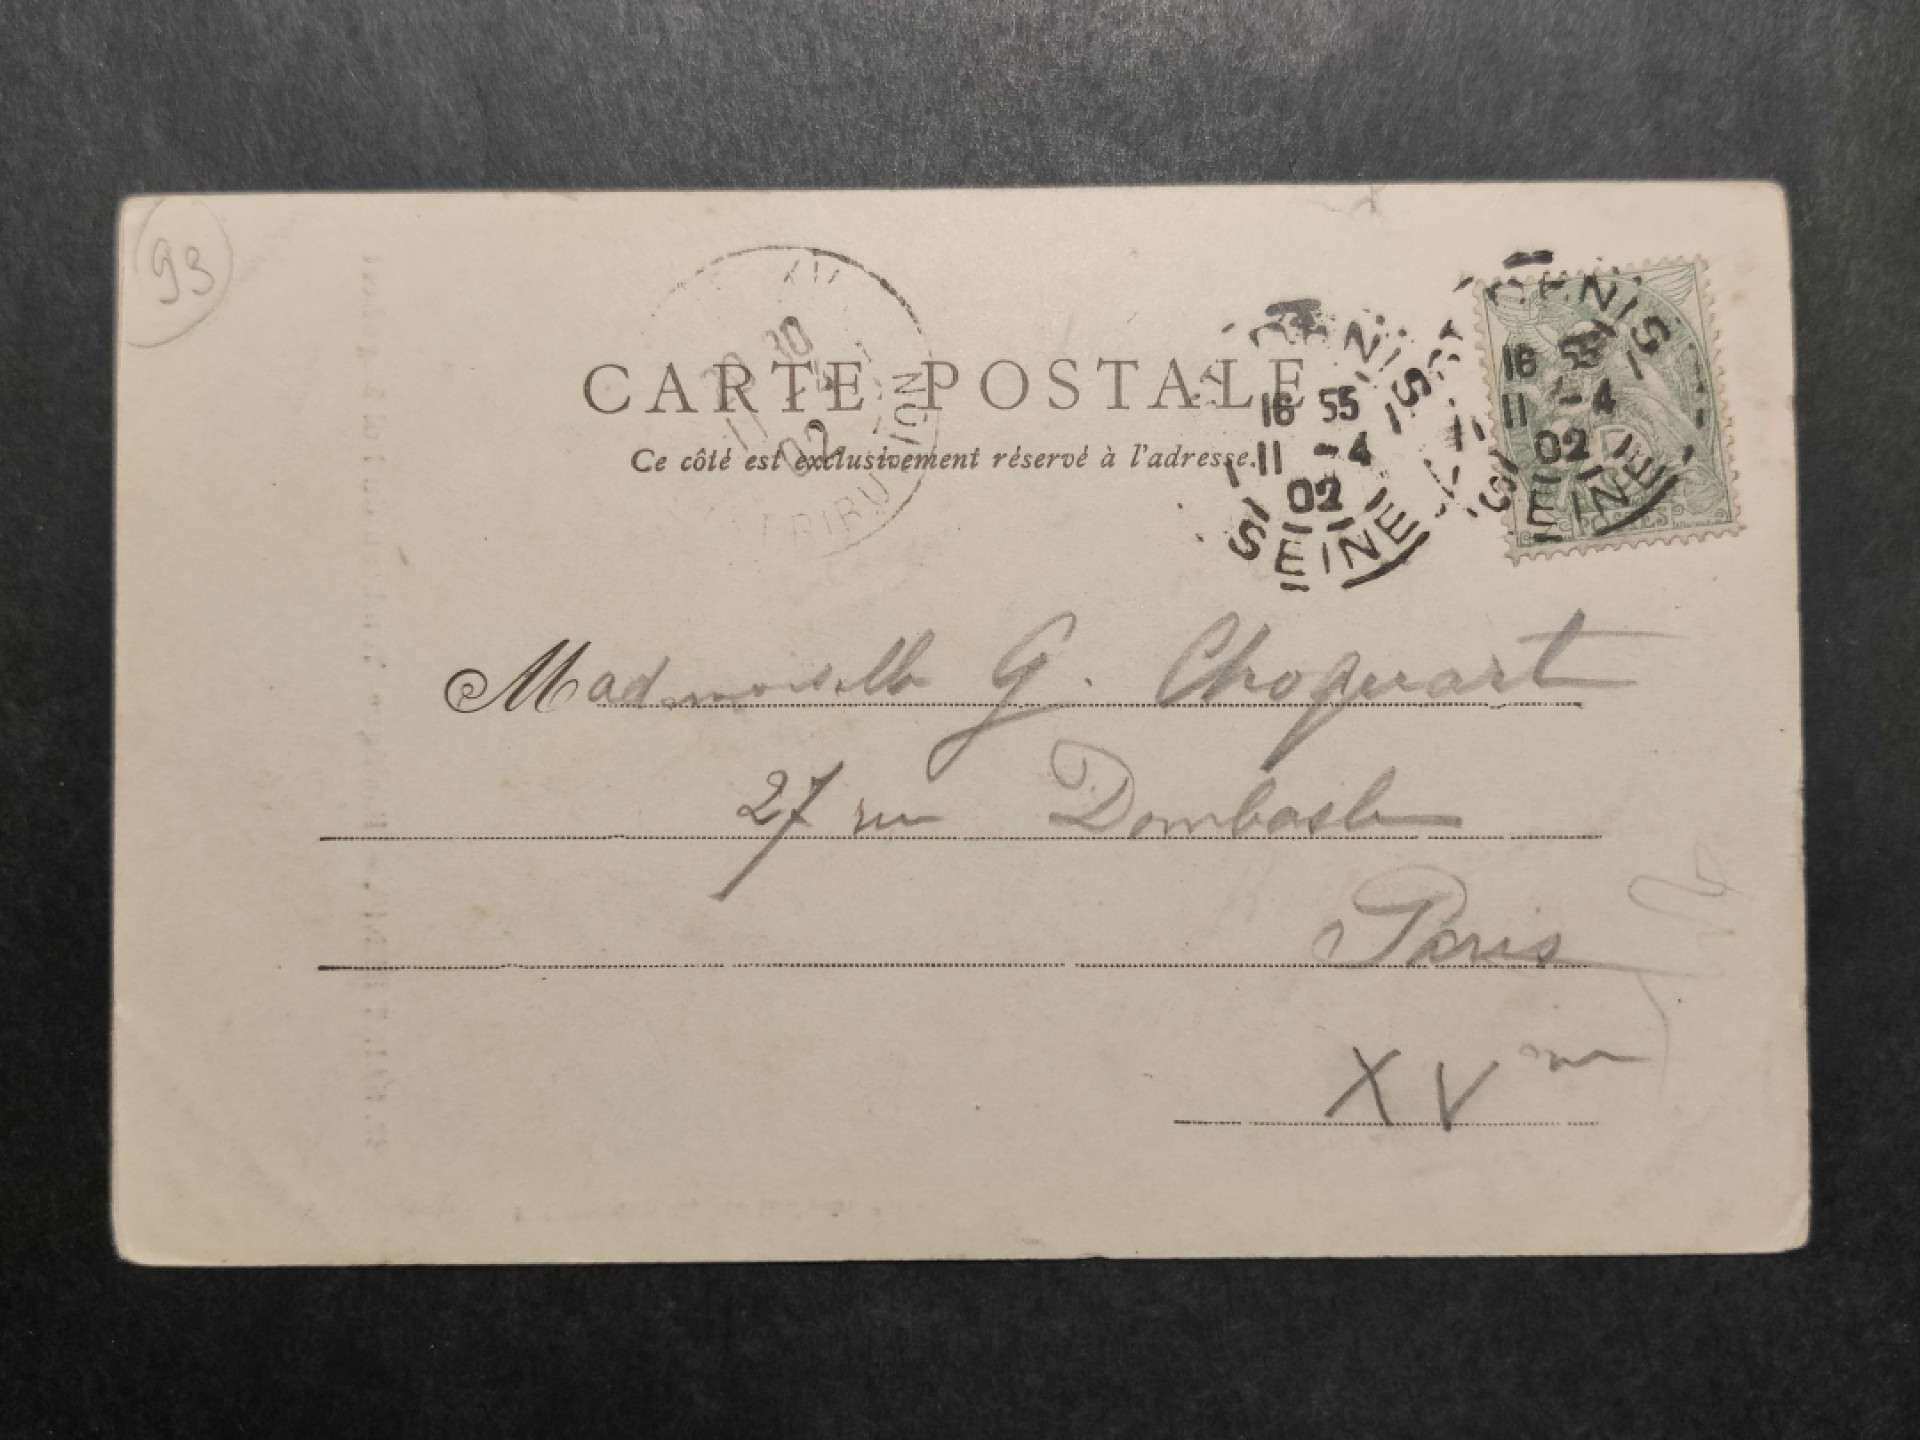 93
CARTE POSTALE
Ce côté est exclusivement réservé à l'adresse.
DISTRIBUTION
11 4
02
ST DENIS
16 55
11 -4
02
SEINE
ST DENIS
16 55
11 -4
02
SEINE
POSTES
Mademoiselle G. Choquart
27 rue Dombasle
Paris
XVme